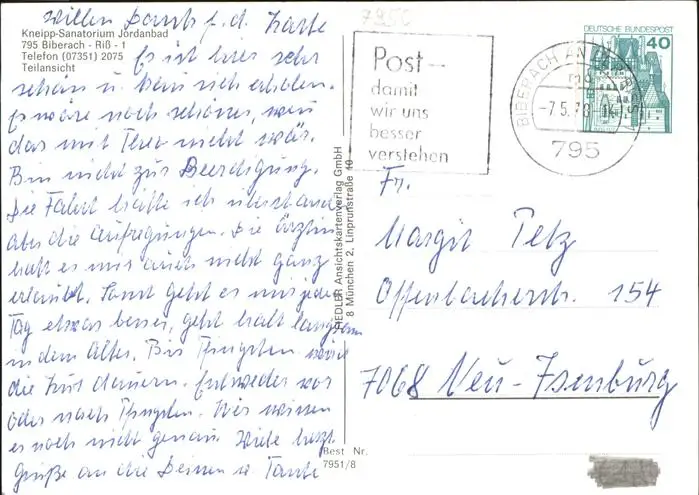 Vielen Dank f. d. Karte
Kneipp-Sanatorium Jordanbad
795 Biberach - Riß - 1
Telefon (07351) 2075
Teilansicht
Es ist hier sehr
schön u. kann mich erholen.
Es wäre noch schöner, wenn
das mit nicht wär.
Bin nicht zur Beerdigung.
Die Fahrt hätte ich überstanden
aber die Aufregungen. Die Ärztin
hat es mir auch nicht ganz
erlaubt. Sonst geht es mir jeden
Tag etwas besser, geht halt langsam
in dem Alter. Bis Pfingsten wird
die Kur dauern. Entweder vor
oder nach Pfingsten. Wir wissen
es noch nicht genau. Viele herzl.
Grüße an die Deinen u. Tante
FIEDLER Ansichtskartenverlag GmbH
8 München 2, Linprunstraße 10
Best Nr.
7951/8
7950
Post–
damit
wir uns
besser
verstehen
BIBERACH AN DER RISS
-7.5.78
795
DEUTSCHE BUNDESPOST
40
Fr.
Margit Petz
Offenbacherstr. 154
7068 Neu-Isenburg